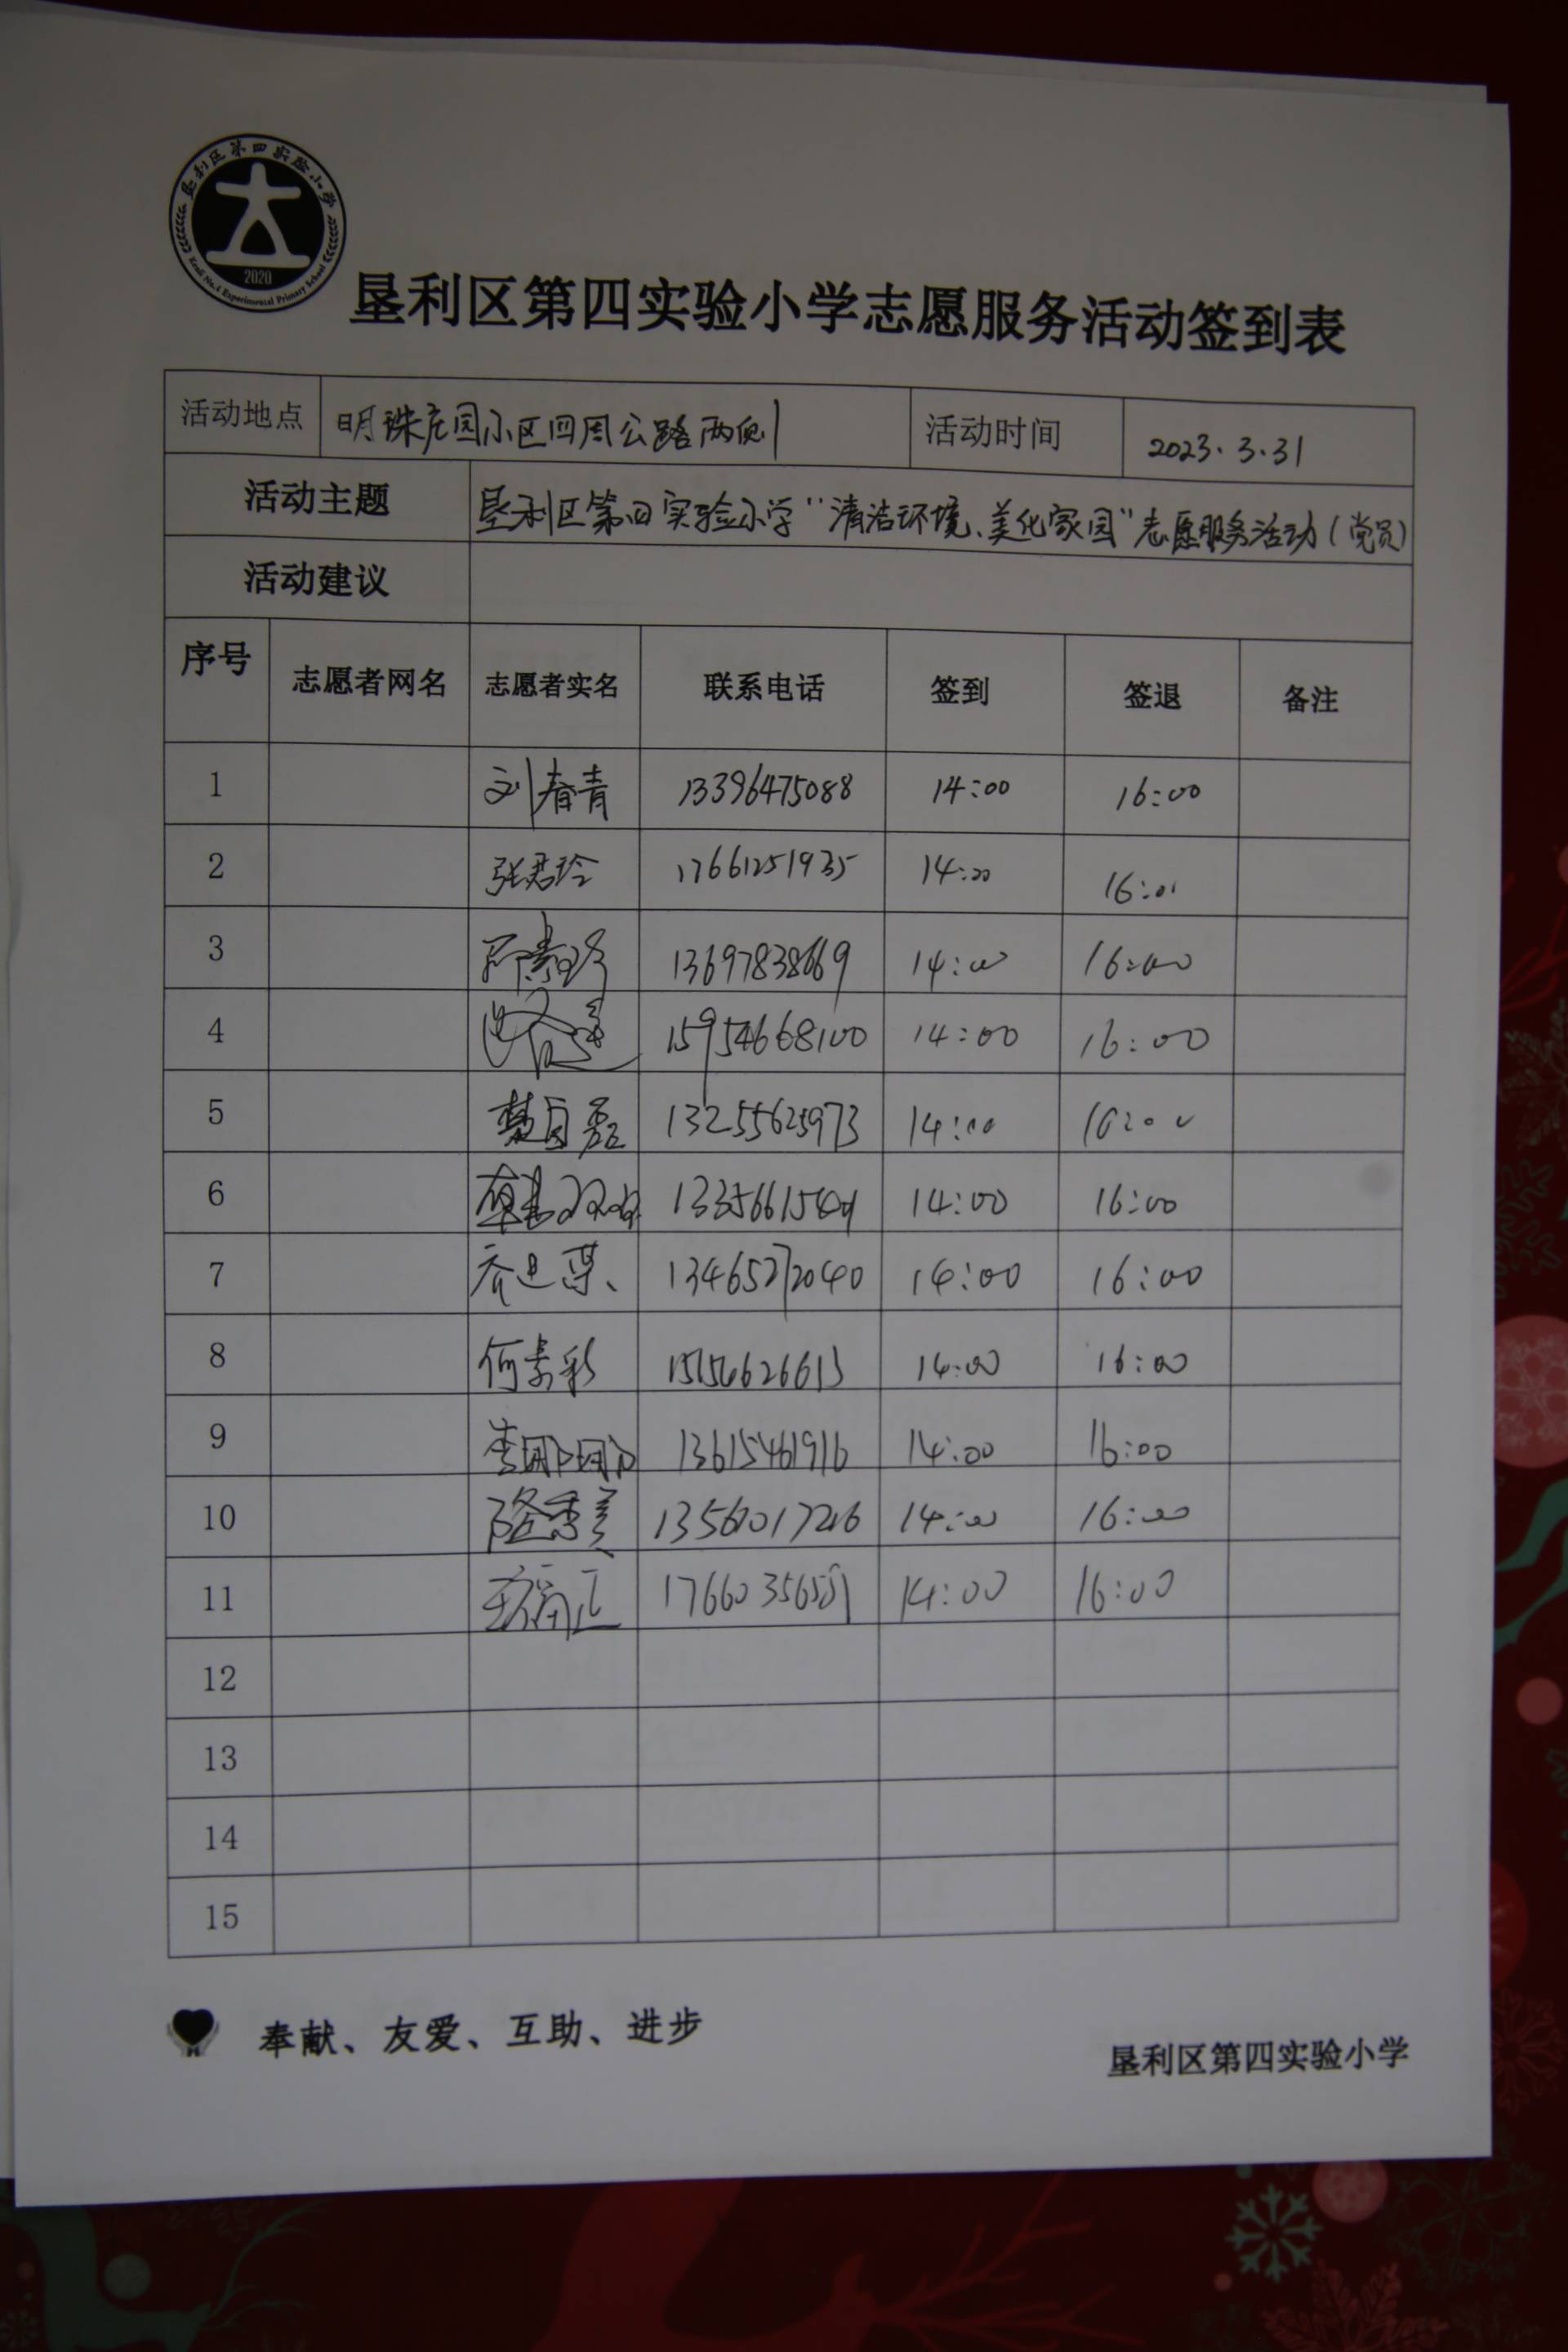 垦利区第四实验小学
2020
Kenli No.4 Experimental Primary School
垦利区第四实验小学志愿服务活动签到表
活动地点 明珠庄园小区四周公路两侧 活动时间 2023.3.31
活动主题 垦利区第四实验小学“清洁环境、美化家园”志愿服务活动(党员)
活动建议
序号 志愿者网名 志愿者实名 联系电话 签到 签退 备注
1 刘春青 13396475088 14:00 16:00
2 张君玲 17661251935 14:00 16:00
3 13697838669 14:00 16:00
4 15954668100 14:00 16:00
5 13255625973 14:00 16:00
6 14:00 16:00
7 13465272040 14:00 16:00
8 何素彩 14:00 16:00
9 李珊珊 13615461916 14:00 16:00
10 隆秀美 14:00 16:00
11 14:00 16:00
12
13
14
15
奉献、友爱、互助、进步
垦利区第四实验小学